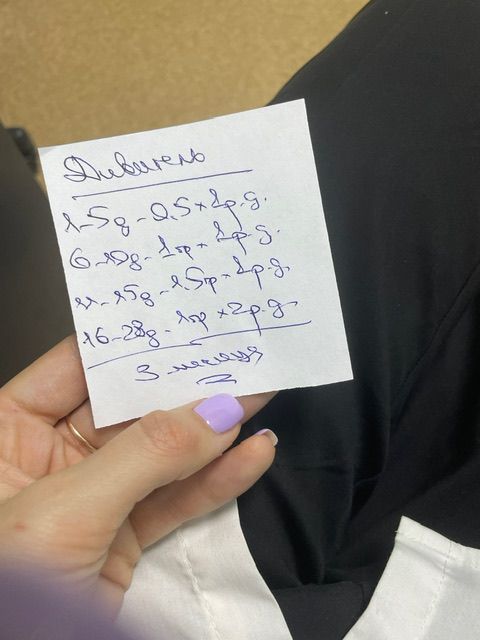 Дивигель
1-5д - 0.5 × 1р.д.
6-10д - 1п × 1р.д.
11-15д - 1.5п × 1р.д.
16-28д - 1п × 2р.д.
3 месяца